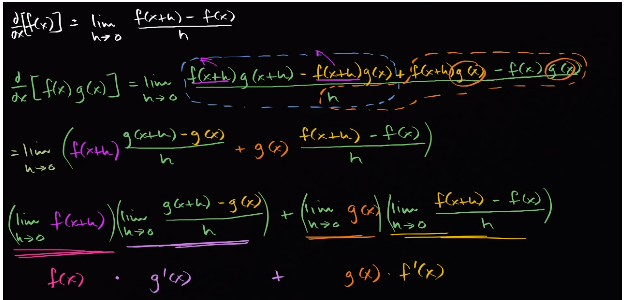 d/dx[f(x)] = lim h→0 (f(x+h) - f(x))/h
d/dx[f(x)g(x)] = lim h→0 (f(x+h)g(x+h) - f(x+h)g(x) + f(x+h)g(x) - f(x)g(x))/h
= lim h→0 (f(x+h) (g(x+h) - g(x))/h + g(x) (f(x+h) - f(x))/h)
(lim h→0 f(x+h)) (lim h→0 (g(x+h) - g(x))/h) + (lim h→0 g(x)) (lim h→0 (f(x+h) - f(x))/h)
f(x) · g'(x) + g(x) · f'(x)